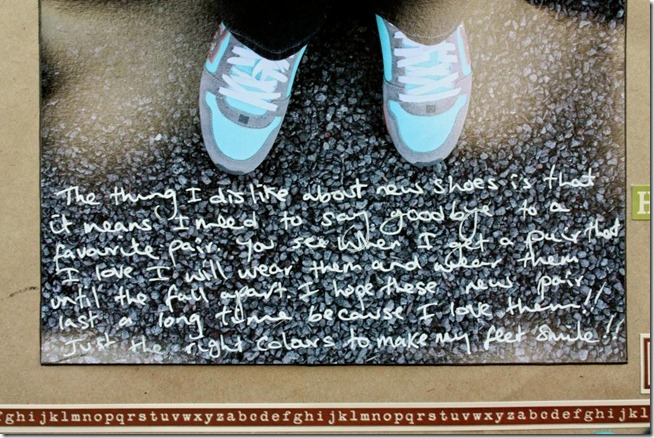 The thing I dislike about new shoes is that
it means I need to say goodbye to a
favourite pair. You see when I get a pair that
I love I will wear them and wear them
until the fall apart. I hope these new pair
last a long time because I love them!!
Just the right colours to make my feet smile!!
H
fghijklmnopqrstuvwxyzabcdefghijklmnopqrstuvwxyzabcdefghijklmno